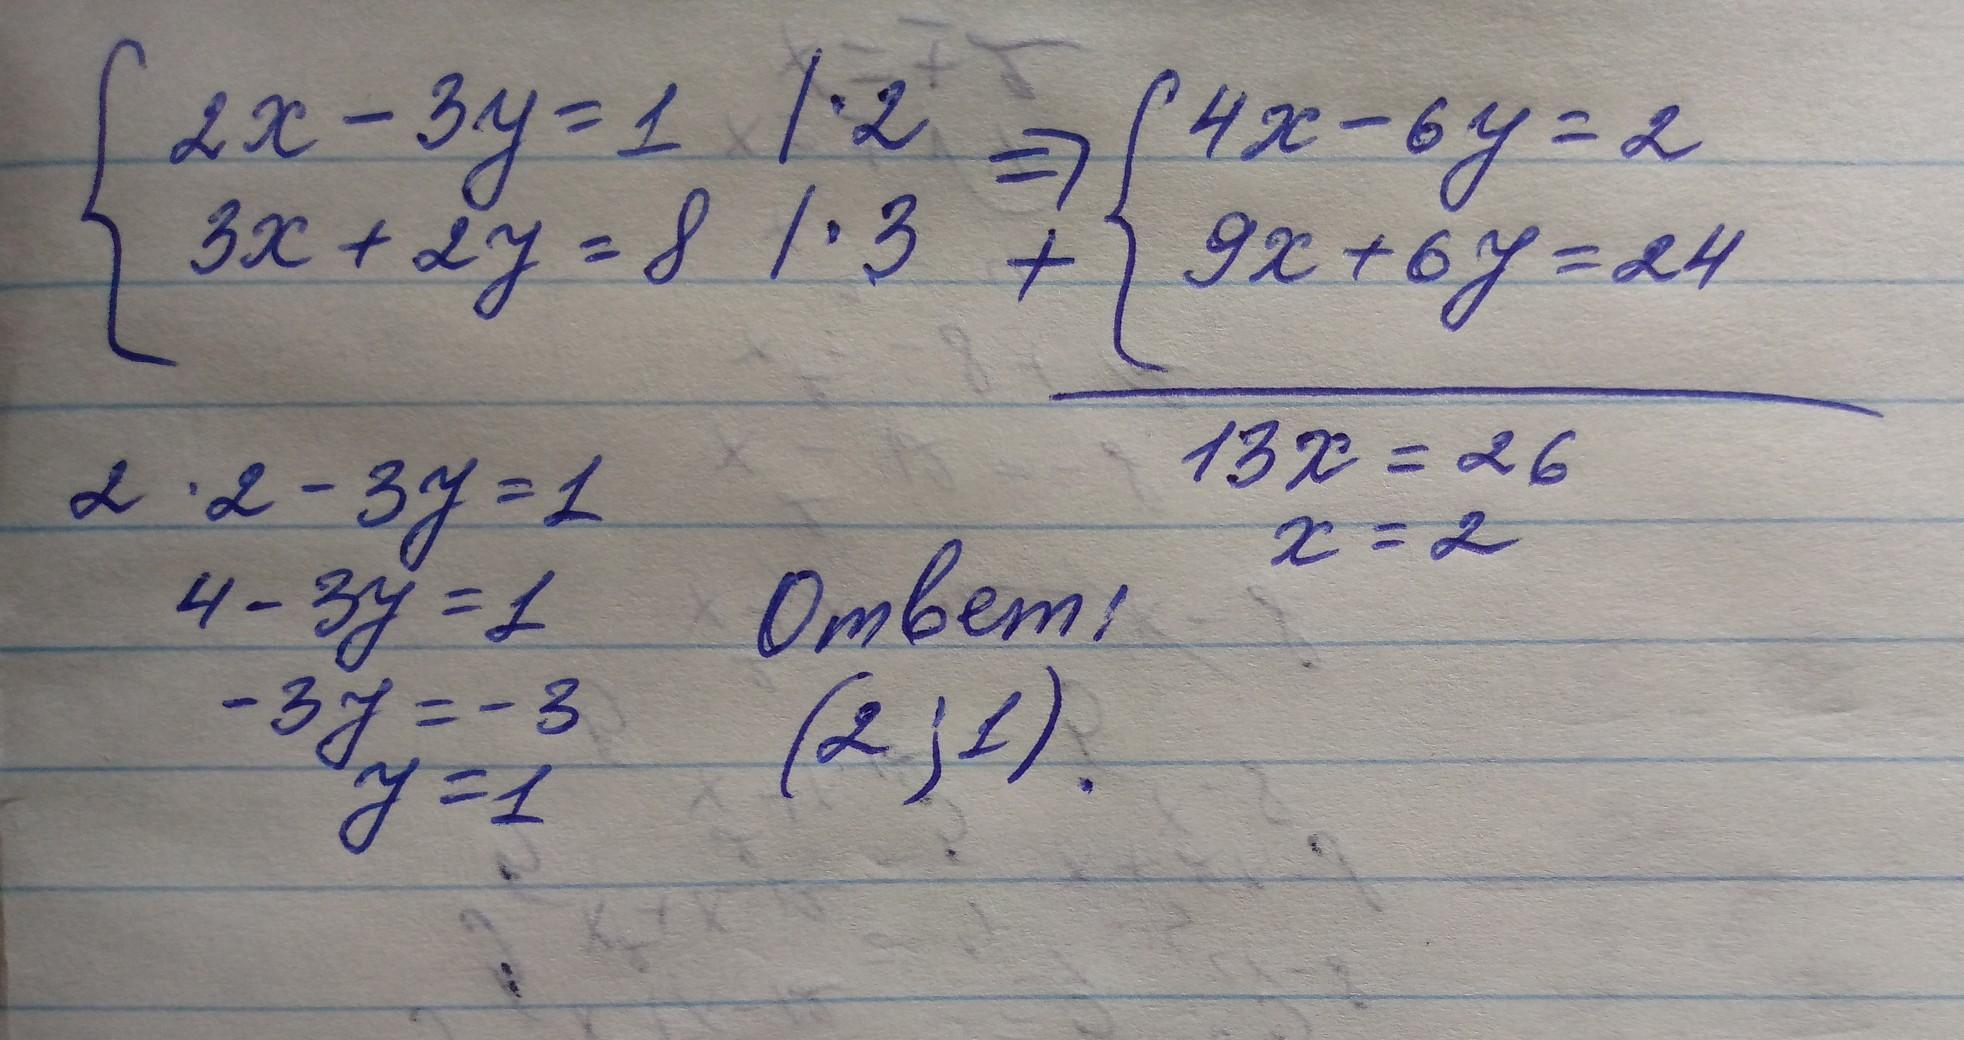 2x - 3y = 1 | · 2 => 4x - 6y = 2
3x + 2y = 8 | · 3 + 9x + 6y = 24
13x = 26
x = 2
2 · 2 - 3y = 1
4 - 3y = 1
-3y = -3
y = 1
Ответ:
(2 ; 1).